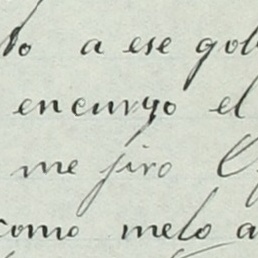 a ese gob
encuryo el
me jiro
como melo a